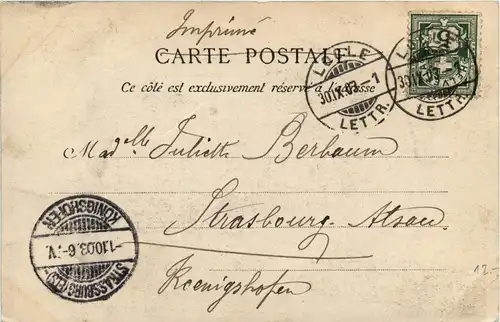 Imprimé
CARTE POSTALE
Ce côté est exclusivement réservé à l'adresse
LOCLE
30.IX.03.-1
LETTR.
LOCLE
30.IX.03.-1
LETTR.
Madelle Juliette Berbaum
Strasbourg. Alsace
Koenigshofen
STRASSBURG (ELS)-
-1.10.03.6-7.V.
KÖNIGSHOFEN
12.-